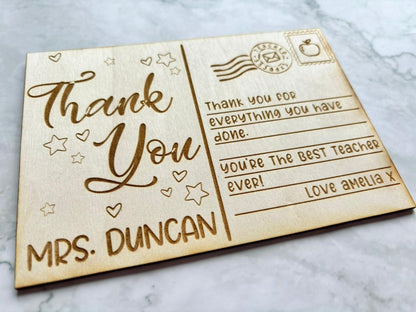 Thank
You
MRS. DUNCAN
THANK YOU FOR
EVERYTHING YOU HAVE
DONE.
YOU'RE THE BEST TEACHER
EVER!
LOVE AMELIA X